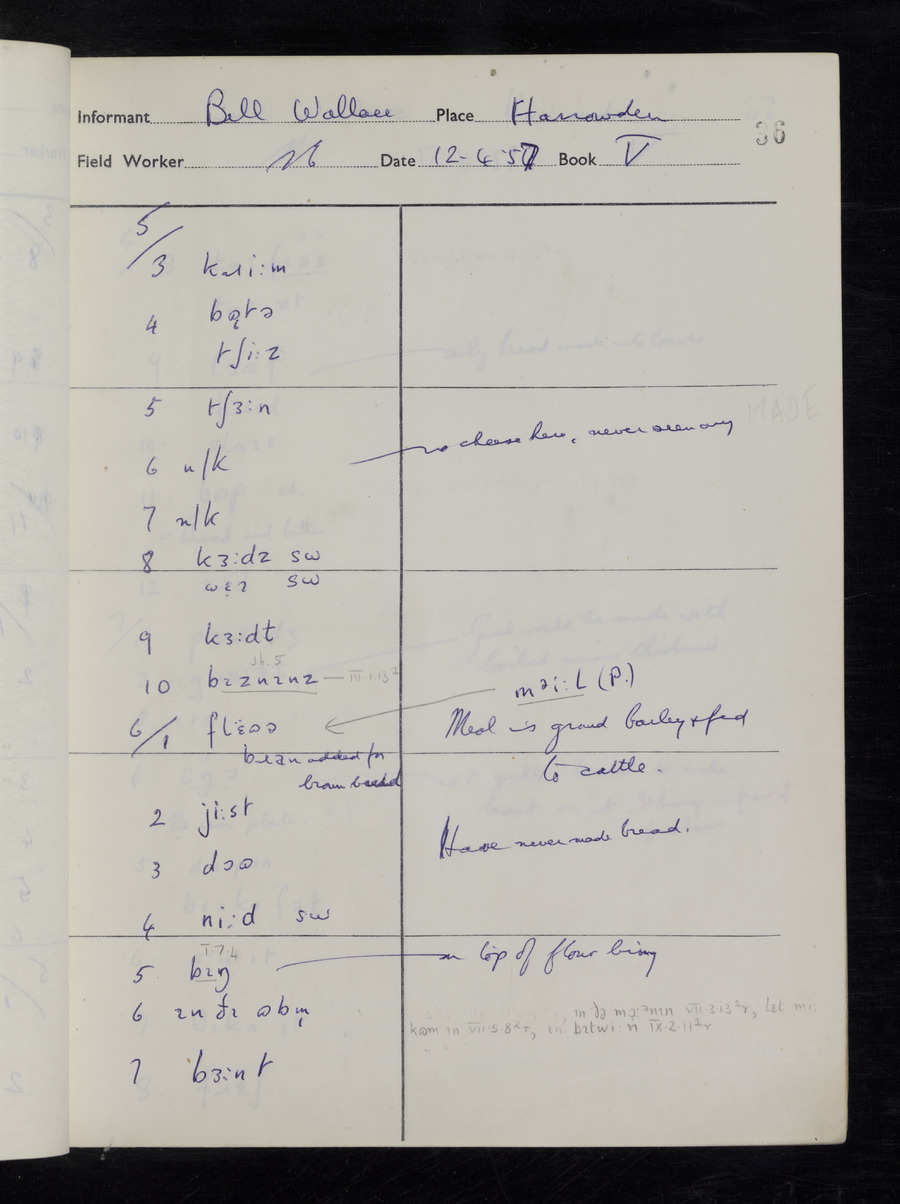 Informant Bill Wallace Place Harrowden
36
Field Worker Date 12-4-57 Book V
5/3 kɹiːm
4 bʊ̨tə
tʃiːz
5 tʃɜːn
6 n/k no cheese here, never seen any
MADE
7 n/k
8 kɜːdz sw
wɛɪ sw
9 kɜːdt
10 III.1.13²
mᵊiːL (P.)
6/1 Meal is ground barley & fed
to cattle.
bɹan added for
brown bread
2 jiːst
3 dɔʊ
Have never made bread.
4 niːd sw
I.7.4
5 bɪŋ on top of flour being
6
VII.3.13²r, lɛt miː
kʊm ɪn VII.5.8²r, ɪn bɪtwiːn IX.2.11²r
7 bɜːnt